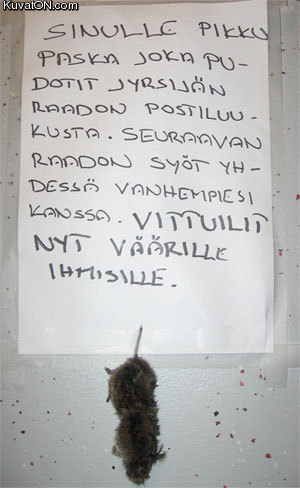 KuvatON.com
SINULLE PIKKU
PASKA JOKA PU-
DOTIT JYRSIJÄN
RAADON POSTILUU-
KUSTA. SEURAAVAN
RAADON SYÖT YH-
DESSÄ VANHEMPIESI
KANSSA. VITTUILIT
NYT VÄÄRILLE
IHMISILLE.